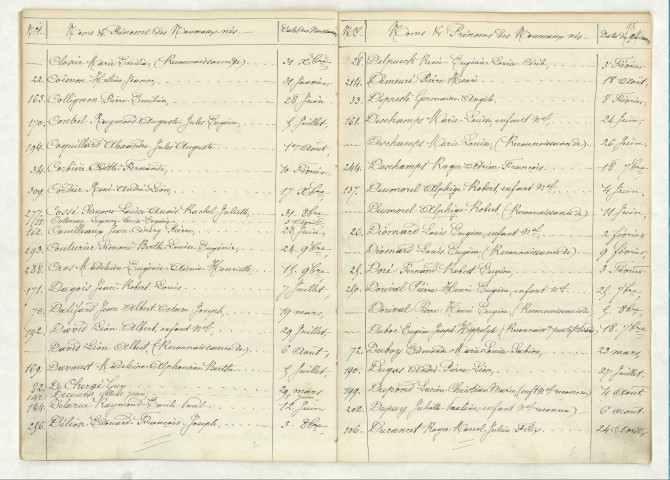 Nos. Noms & Prénoms des Nouveaux-nés. Dates des Naissances
— Closier Marie Emilie, (Reconnaissance de) 31 Xbre
22. Coësnon Hélène Jeanne, 31 Janvier
163. Collignon Pierre Emilien, 28 Juin
170. Contrel Raymond Auguste Jules Eugène, 5 Juillet,
194. Coquillard Alexandre Jules Auguste 1er Août
34. Cordier Berthe Fernande, 10 Février
309. Cordier René André Léon, 17 Xbre
277. Cossé Simone Louise Anaïs Rachel Juliette, 31 8bre
162. Couilleaux Jean Pierre, 28 Juin
293. Couturier Simone Berthe Louise Eugénie, 24 9bre
288. Cros Madeleine Eugénie Aimée Henriette 18 9bre
171. Dagois Jean Robert Louis 7 Juillet,
70. Dalifard Jean Albert Octave Joseph, 19 mars,
192. David Léon Albert, enfant Nel. 29 Juillet,
— David Léon Albert, (Reconnaissance de) 6 Août,
169. Davoust Madeleine Alphonsine Marthe 5 Juillet,
82. De Chergé Guy 29 mars
144. Delarue Raymond Emile Paul 12 Juin
256. Délion Edouard François Joseph 3 8bre
Nos. Noms & Prénoms des Nouveaux-nés. Dates des Naissances
28. Delpueck Renée Eugénie Louise Cécile, 3 Février
214. Démeuré Pierre Henri 18 Août,
33. Depresle Germaine Angèle 8 Février
161. Deschamps Marie Louise, enfant Nel. 24 Juin,
— Deschamps Marie Louise, (Reconnaissance de) 26 Juin,
244. Deschamps Roger Adrien François 18 7bre
137. Deumorel Alphège Robert, enfant Nel. 4 Juin,
— Deumorel Alphège Robert, (Reconnaissance de) 11 Juin,
23. Diomard Louis Eugène, enfant Nel. 2 Février
— Diomard Louis Eugène, (Reconnaissance de) 9 Février
29. Doré Fernand Robert Eugène, 3 Février
250. Dorival Pierre Henri Eugène, enfant Nel. 25 7bre,
— Dorival Pierre Henri Eugène, (Reconnaissance de 5 8bre,
— Dubor Eugène Joseph Hippolyte 18 7bre
72. Duboy Edmonde Marie Louise Sabine, 22 mars
190. Dugas André Pierre Léon, 27 Juillet,
199. Dupond Lucien Christian Marie, (enft Nel reconnu) 4 Août
202. Dupuy Juliette Pauline, enfant Nel (reconnu) 6 Août.
106. Durancet Roger Marcel Julien Félix 24 Avril,